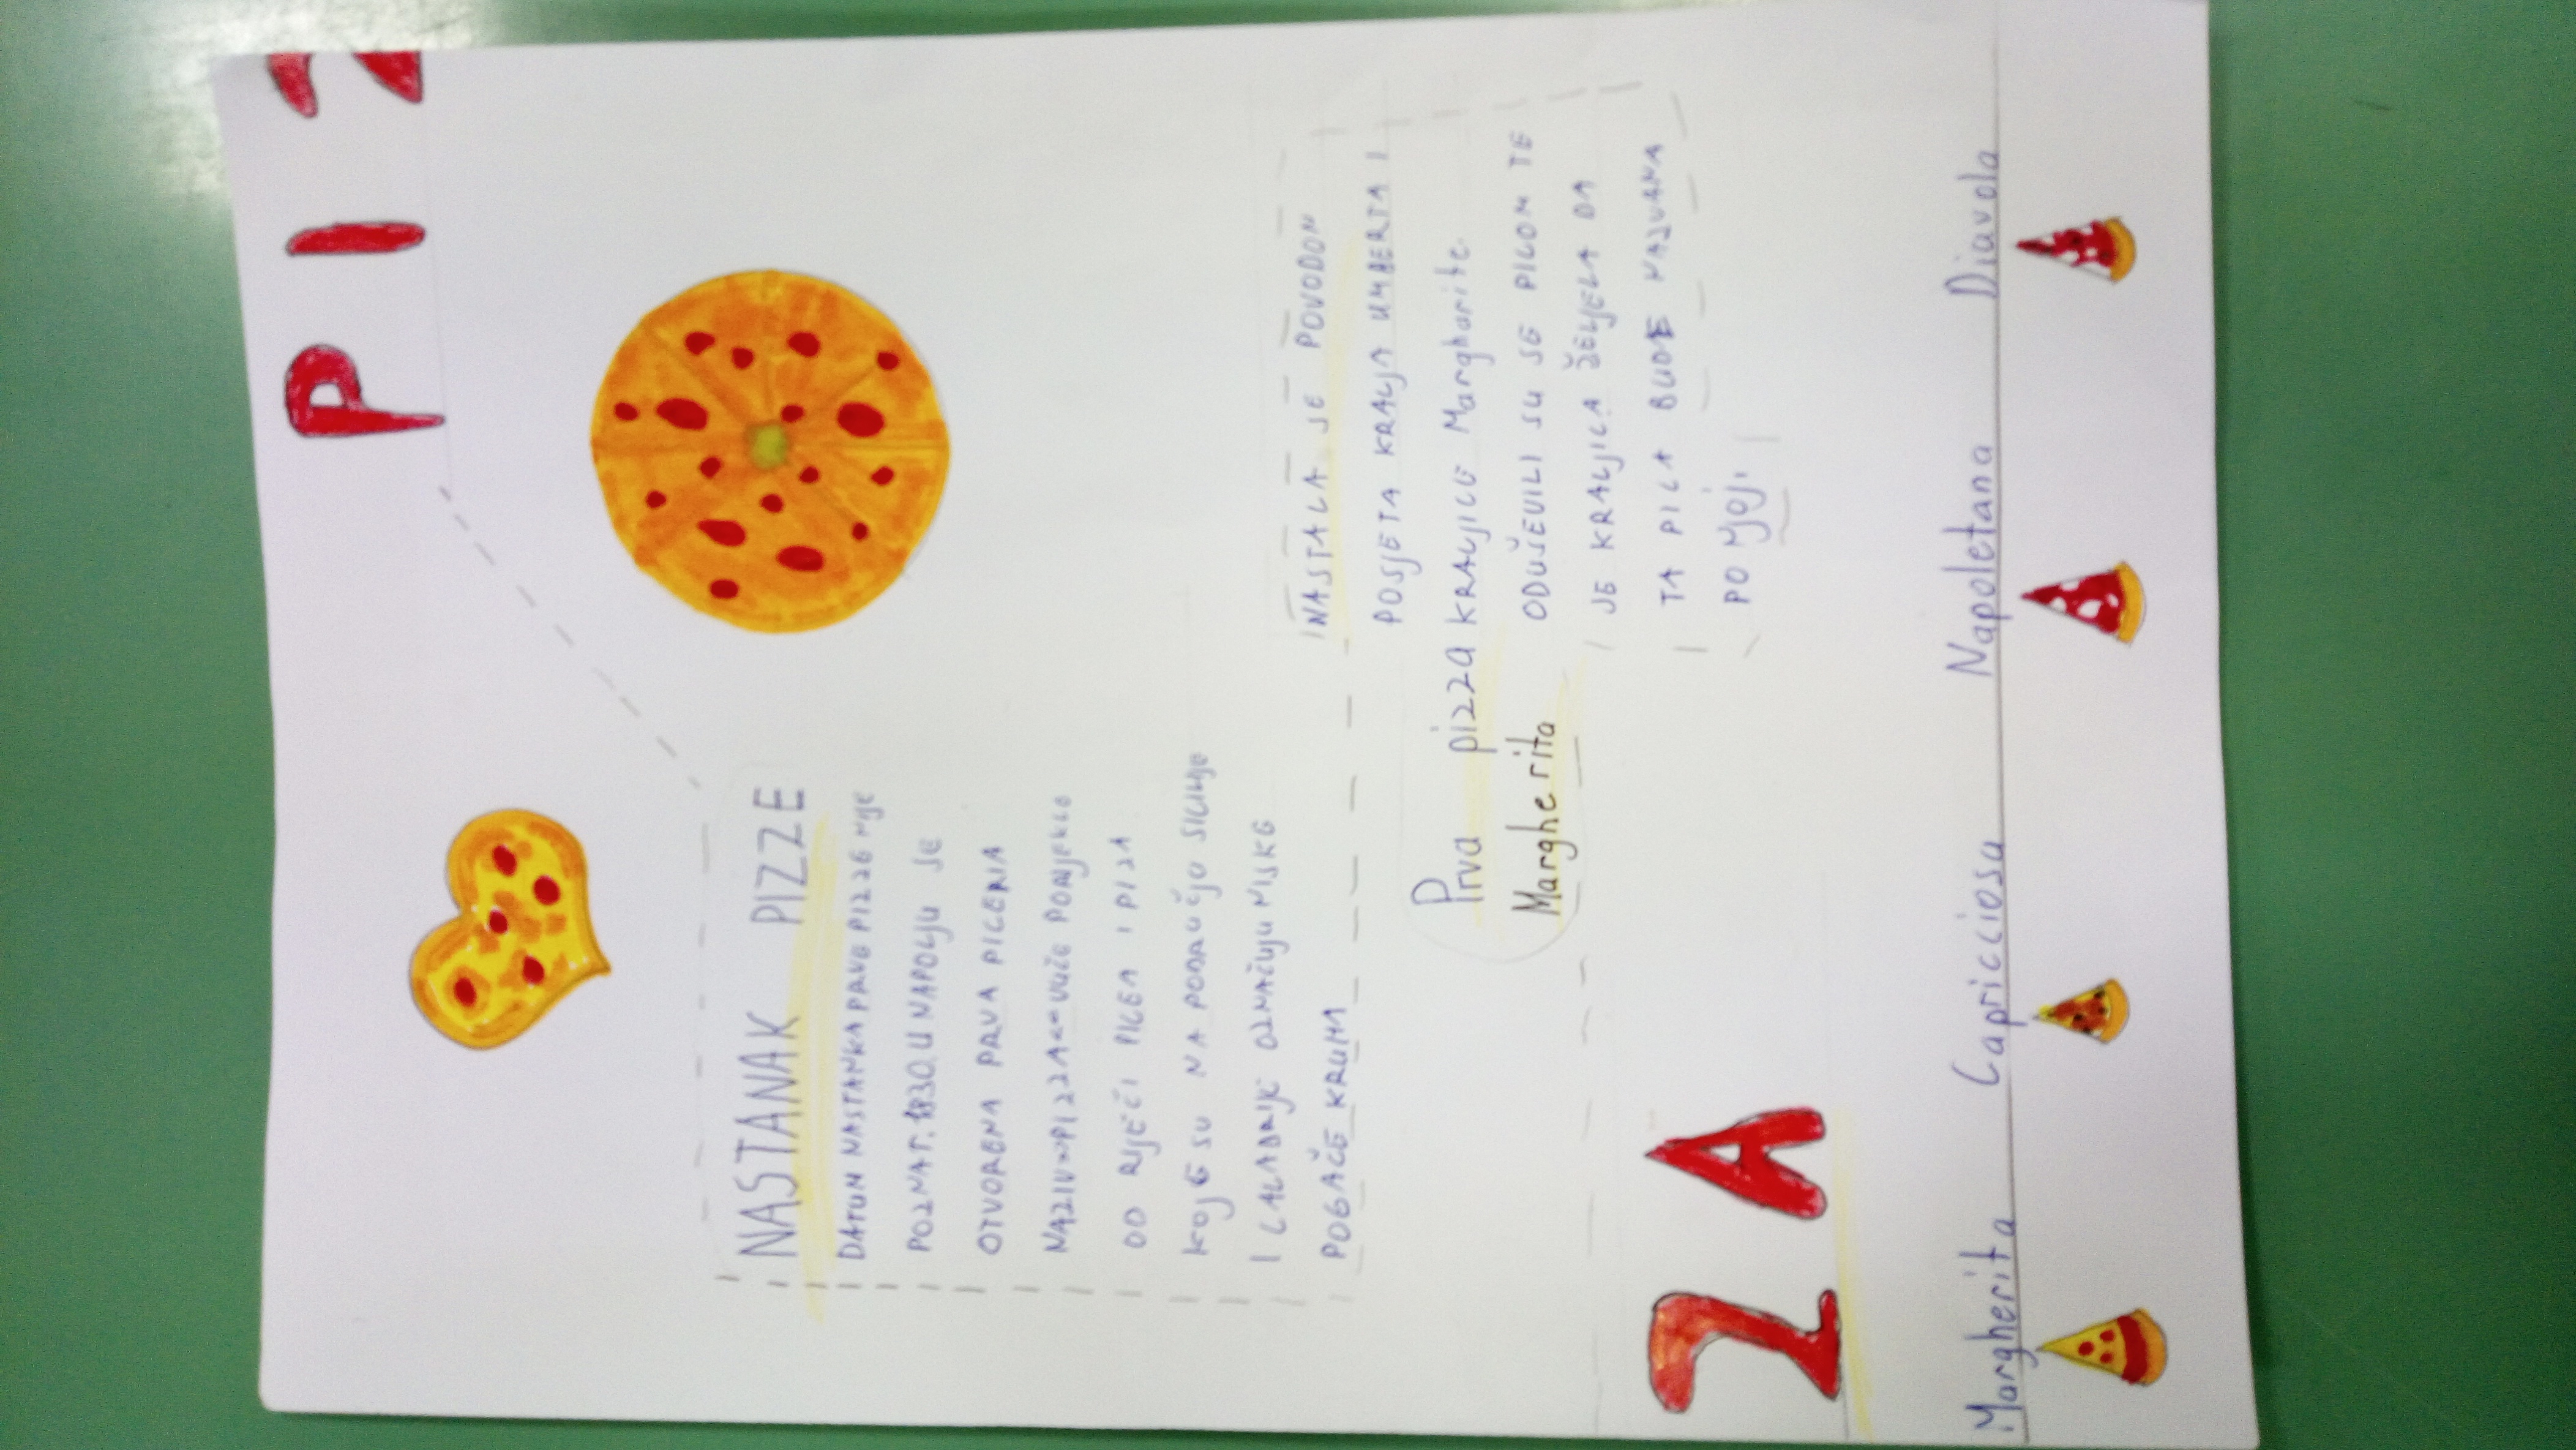 PIZ
NASTANAK PIZZE
DATUM NASTANKA PRVE PIZZE NIJE
POZNAT. 1830. U NAPOLJU JE
OTVORENA PRVA PICERIA
NAZIV »PIZZA«« VUČE PORIJEKLO
OD RIJEČI PICEA I PIZA
KOJE SU NA PODRUČJU SICILIJE
I CALABRIJE OZNAČUJU NISKE
POGAČE KRUHA
Prva pizza
Margherita
NASTALA JE POVODOM
POSJETA KRALJA UMBERTA I
KRALJICE Margharite.
ODUŠEVILI SU SE PICOM TE
JE KRALJICA ŽELJELA DA
TA PICA BUDE NAZVANA
PO NJOJ.
ZA
Margherita Capricciosa Napoletana Diavola